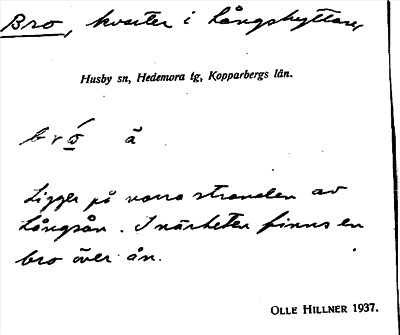 Bro, kvarter i Långshyttan,
Husby sn, Hedemora tg, Kopparbergs län.
ä
Ligger på norra stranden av
Långsån. I närheten finns en
bro över ån.
OLLE HILLNER 1937.